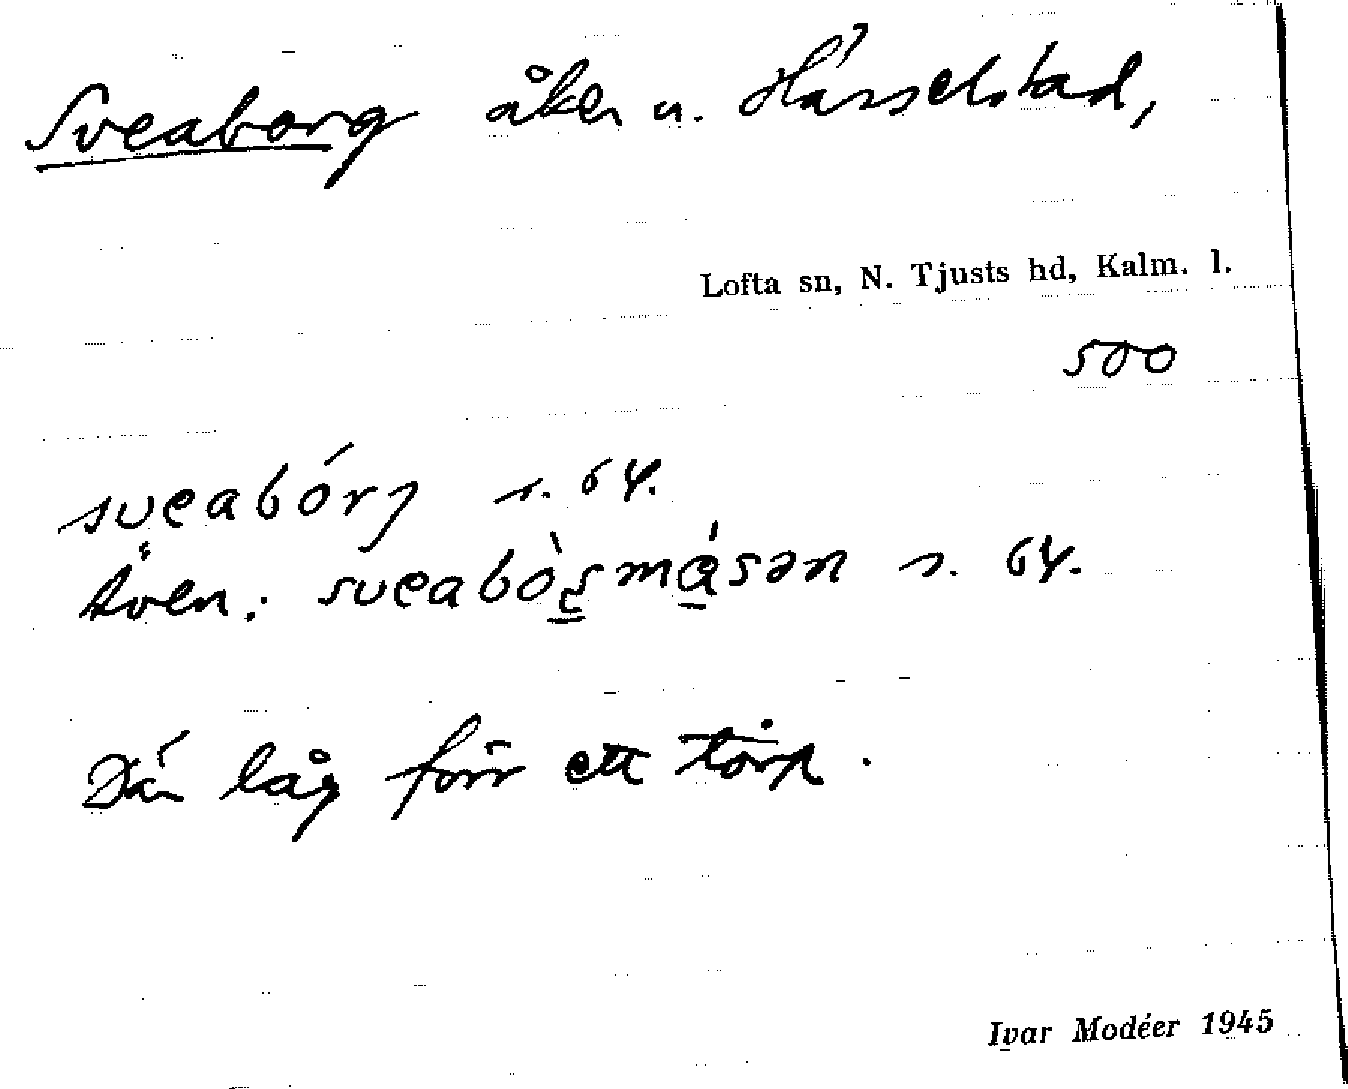 Sveaborg åker u. Hässelstad,
Lofta sn, N. Tjusts hd, Kalm. l.
500
sveabórj s. 64.
Även: sveabò̱s̱ma̱sən s. 64.
Där låg förr ett torp.
Ivar Modéer 1945